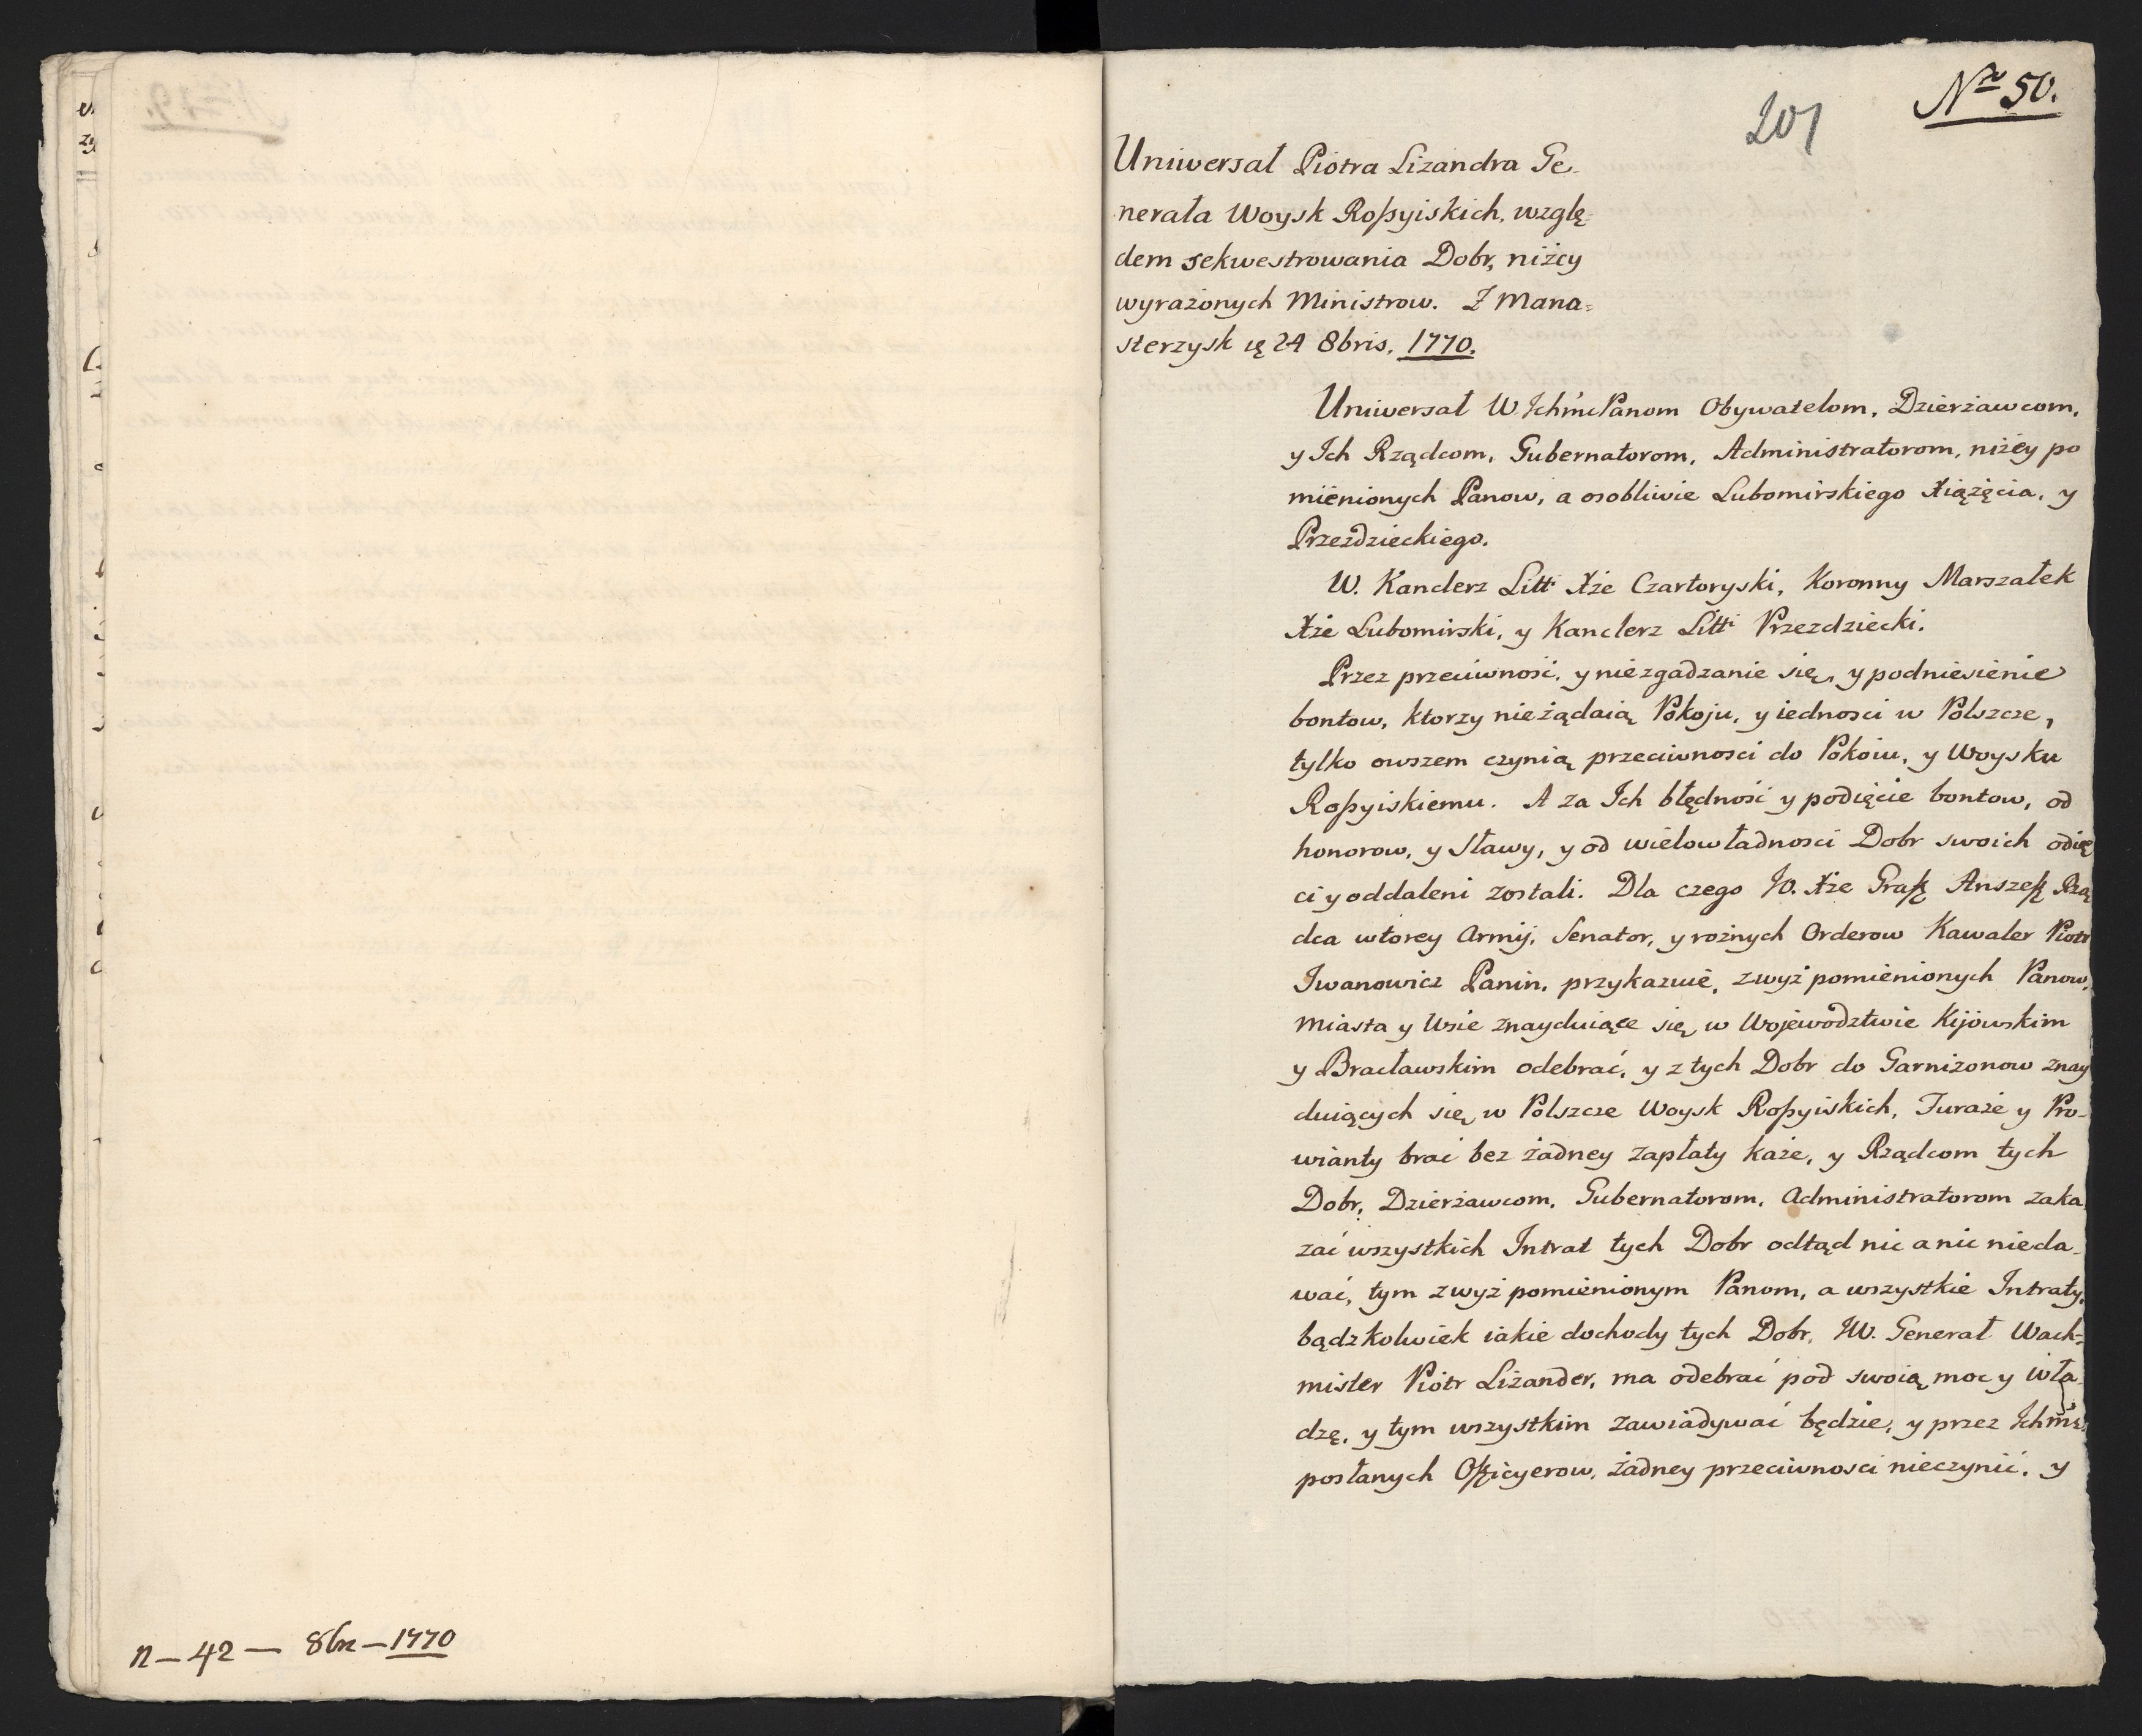 n – 42 – 8br – 1770
Nro 50.
201
Uniwersał Piotra Lizandra Ge-
nerała Woysk Roßyiskich, wzglę-
dem sekwestrowania Dobr, niżey
wyrażonych Ministrow. Z Mana=
sterzysk
24 8bris. 1770.
Uniwersał W. Ichmć Panom Obywatelom, Dzierżawcom,
y Ich Rządcom, Gubernatorom, Administratorom, niżey po
mienionych Panow, a osobliwie Lubomirskiego Xiążęcia, y
Przezdzieckiego.
W. Kanclerz Litt: Xże Czartoryski, Koronny Marszałek
Xże Lubomirski, y Kanclerz Litt: Przezdziecki.
Przez przeciwność, y niezgadzanie się, y podniesienie
bontow, ktorzy nieżądaią Pokoju, y iedności w Polszcze,
tylko owszem czynią przeciwnosci do Pokoiu, y Woysku
Roßyiskiemu. A za Ich błędność y podięcie bontow, od
honorow, y Sławy, y od wielowładnosci Dobr swoich odię
ci y oddaleni zostali. Dla czego JO. Xże Graff Anszeff Rzą
dca wtorey Armij, Senator, y rożnych Orderow Kawaler Piotr
Iwanowicz Panin, przykazuie, zwyż pomienionych Panow,
Miasta y Wsie znayduiące się w Wojewodztwie Kijowskim
y Bracławskim odebrać, y z tych Dobr do Garnizonow znay
duiących się w Polszcze Woysk Roßyiskich, Furaże y Pro-
wianty brać bez żadney zapłaty każe, y Rządcom tych
Dobr, Dzierżawcom, Gubernatorom, Administratorom zaka
zać wszystkich Intrat tych Dobr odtąd nic a nic nieda-
wać, tym zwyż pomienionym Panom, a wszystkie Intraty,
bądzkolwiek iakie dochody tych Dobr, JW. Generał Wach=
mister Piotr Lizander, ma odebrać pod swoią moc y wła
dzę, y tym wszystkim zawiadywać będzie, y przez Ichmć
posłanych Officyerow, żadney przeciwnosci nieczynić, y